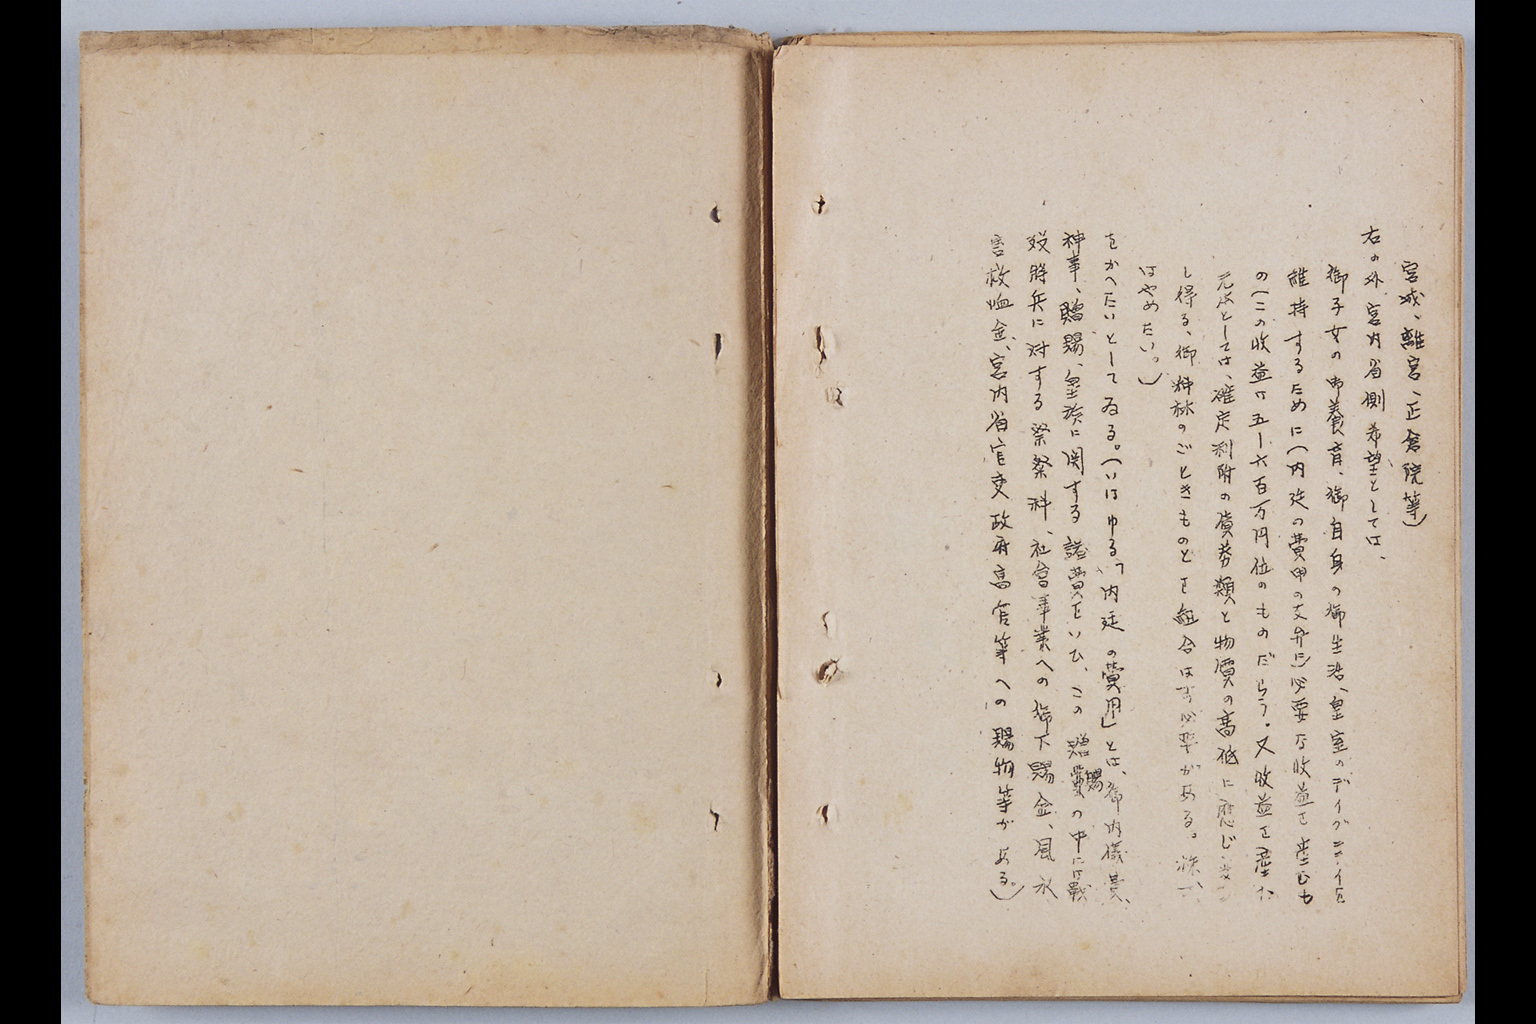 宮城、離宮、正倉院等)
右の外宮内省側希望としては、
御子女の御養育、御自身の御生活、皇室のディグニティを
維持するために(内廷の費用の支弁に)必要な收益を産むも
の(この收益は五—六百万円位のものだらう。又收益を産む
元本としては、確定利附の債券類と物價の高低に應じ
し得る、御料林のごときものとを組合はす必要がある。株は、
はやめたい。)
をかへたいとしてゐる。(いはゆる「内廷の費用」とは、御内儀費、
神事、贈賜、皇族に関する諸費をいひ、この贈賜の中には戰
歿將兵に対する祭粢料、社會事業への御下賜金、風水
害救恤金、宮内省官吏政府高官等への賜物等がある。)